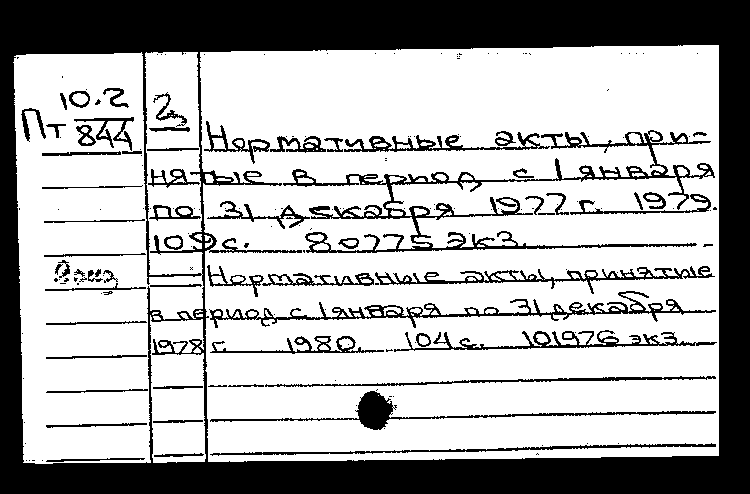 10.2
Пт 844
Нормативные акты, при-
нятые в период с 1 января
по 31 декабря 1977 г. 1979.
109 с. 80775 экз.
Нормативные акты, принятие
в период с 1 января по 31 декабря
1978 г. 1980. 104 с. 101976 экз.